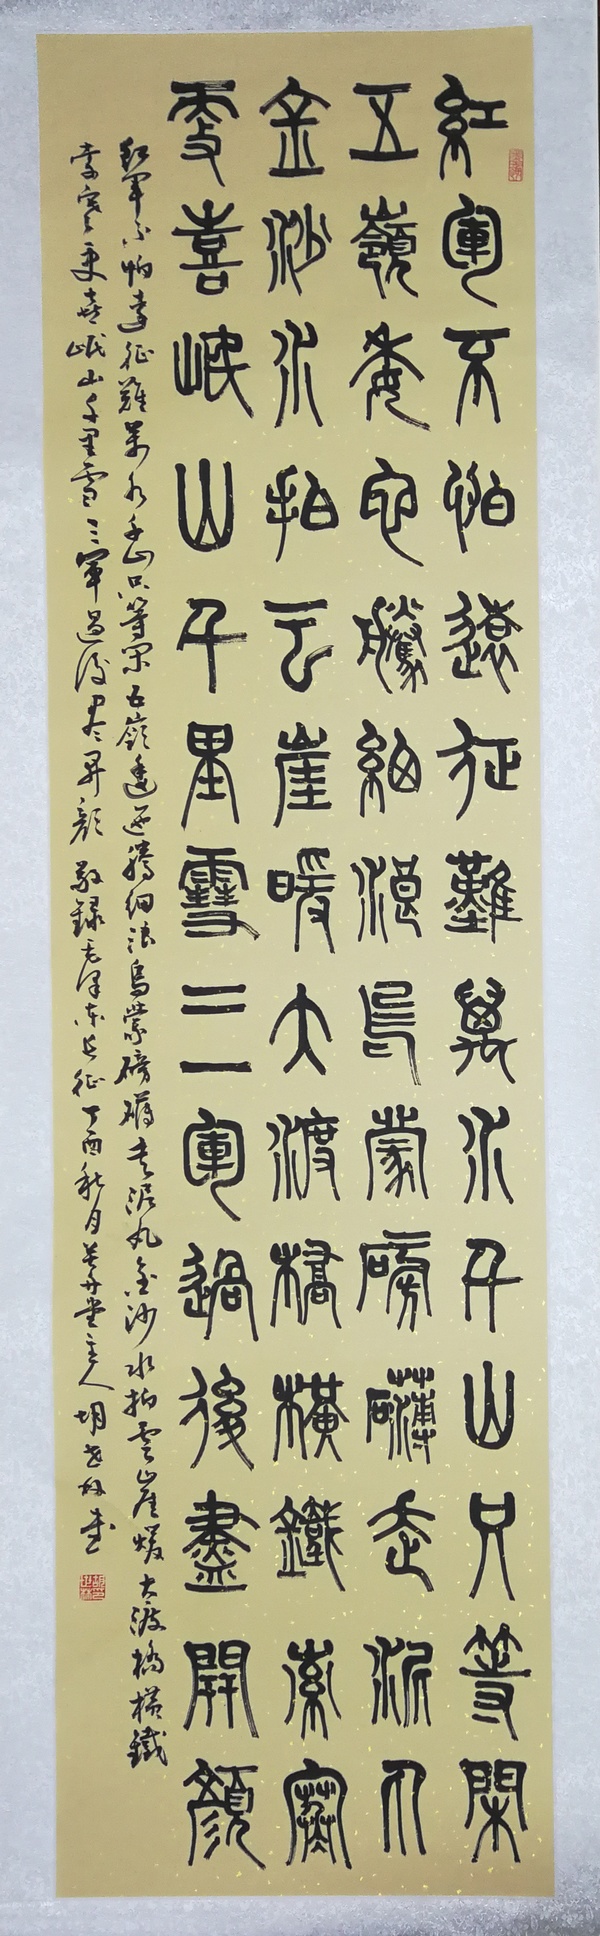 紅軍不怕遠征難萬水千山只等閑
五嶺委它騰細浪烏蒙磅礴走泥丸
金沙水拍云崖暖大渡橋橫鐵索寒
更喜岷山千里雪三軍過後盡開顏
紅軍不怕遠征難萬水千山只等閑五嶺逶迤騰細浪烏蒙磅礴走泥丸金沙水拍雲崖暖大渡橋橫鐵
索寒更喜岷山千里雪三軍過後盡開顏 敬錄毛澤東長征 丁酉秋月堂主人胡書